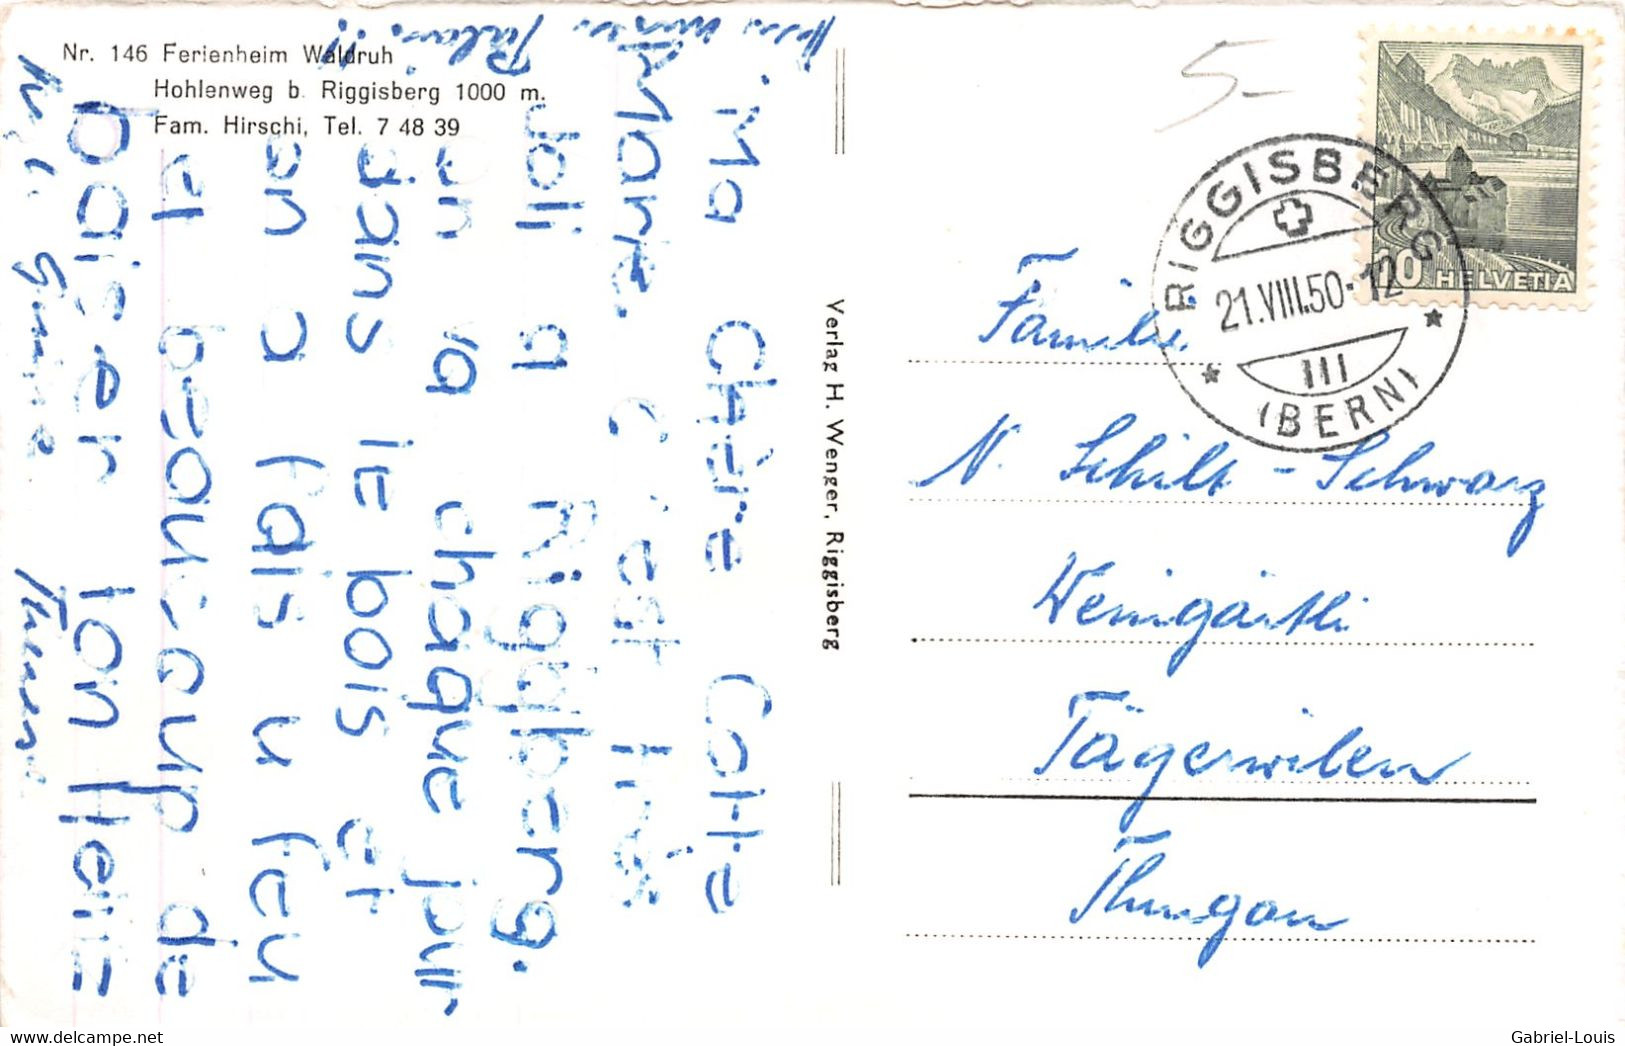 Nr. 146 Ferienheim Waldruh
Hohlenweg b. Riggisberg 1000 m.
Fam. Hirschi, Tel. 7 48 39
Ma Chère Cotte
Marie. C'est très
Joli a Rigyberg.
on va chaque jour
dans le bois et
on a fais u feu
et beaucoup de
baiser ton Heine
Verlag H. Wenger, Riggisberg
5-
HELVETIA
10
RIGGISBERG
21.VIII.50-12
III
(BERN)
Familie
N. Schilt-Schwarz
Weingärtli
Tägerwilen
Thurgau
www.delcampe.net
Gabriel-Louis